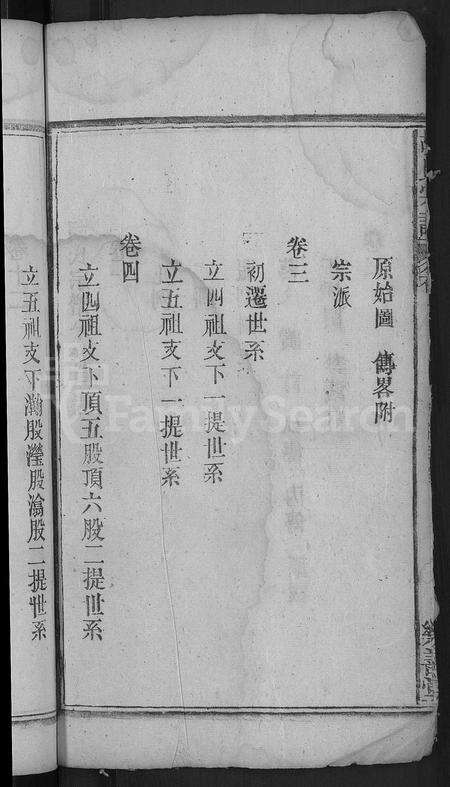 原始圖 傳畧附
宗派
卷三
初遷世系
立四祖支下一提世系
立五祖支下一提世系
卷四
立四祖支下頂五股頂六股二提世系
立五祖支下渤股瀅股滄股二提世系
FamilySearch